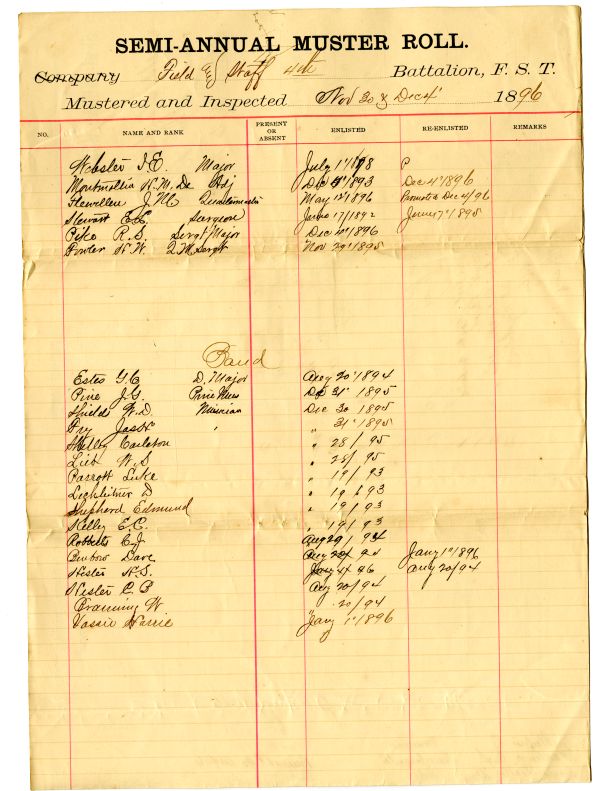 SEMI-ANNUAL MUSTER ROLL.
Company Field & Staff 4th Battalion, F. S. T.
Mustered and Inspected Nov 30 & Dec 4" 1896
NO. NAME AND RANK PRESENT OR ABSENT ENLISTED RE-ENLISTED REMARKS
Webster J. E. Major July 1"
Montmollin W. M. De Adj Dec 4" 1893 Dec 4" 1896
Llewellen J. M. Quartermaster May 12" 1896 Promoted Dec 4/96
Stewart E. C. Surgeon June 17" 1892 June 17" 1895
Pike R. G. Sergt Major Dec 10" 1896
Fowler W. W. Q. M. Sergt Nov 29" 1895
Band
Estes G. C. D. Major Aug 20" 1894
Pine J. G. Dec 31" 1895
Shields W. D. Musician Dec 30 1895
Fry " 31" 1895
Shelby Carleton " 28 / 95
Lieb W. S " 28/ 95
Parrott Luke " 19 / 93
Lichliitner D " 19 / 93
Shepherd Edmund " 19 / 93
Kelley E. C. " 19 / 93
Robbetts E. J. Aug 29 / 94
Dave Aug 20/ 94 Jany 1" 1896
Hester N. S. Jany 4 96 Aug 20/94
Hester C. B Aug 20/94
Branning W. " 20/94
Vassie Harrie Jany 1" 1896